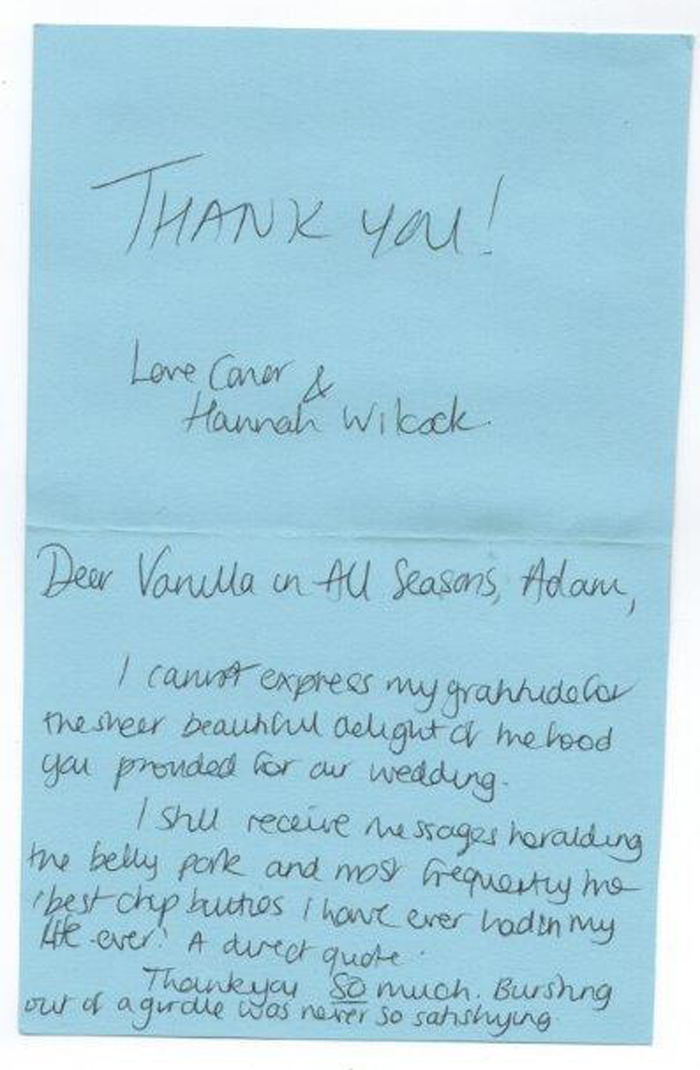 THANK YOU!
Love Conor &
Hannah Wilcock.
Dear Vanilla in All Seasons, Adam,
I cannot express my gratitude for
the sheer beautiful delight of the food
you provided for our wedding.
I still receive messages heralding
the belly pork and most frequently the
'best chip butties I have ever had in my
life ever.' A direct quote.
Thankyou SO much. Bursting
out of a girdle was never so satisfying.